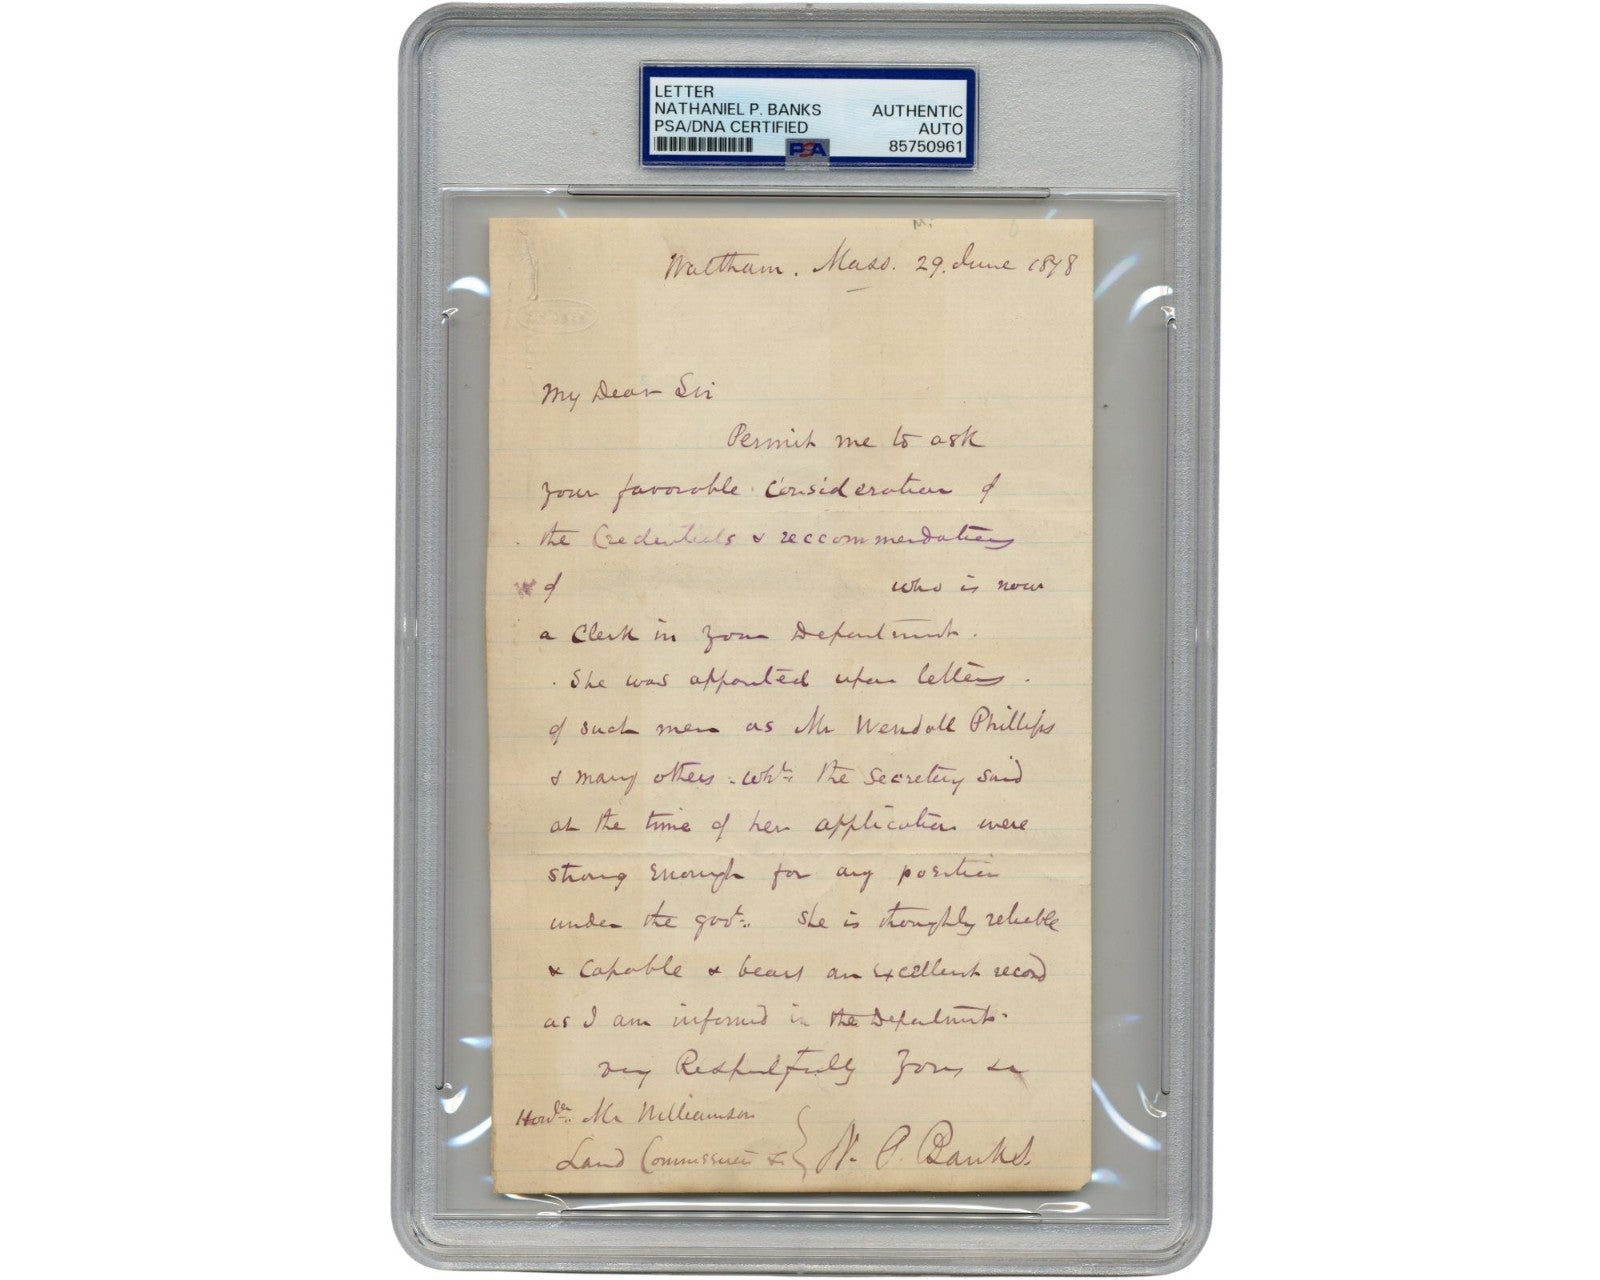 LETTER
NATHANIEL P. BANKS
PSA/DNA CERTIFIED
AUTHENTIC
AUTO
85750961
PSA
Waltham. Mass. 29. June 1878
My Dear Sir
Permit me to ask
your favorable consideration of
the Credentials & reccommendations
of who is now
a Clerk in your Department.
She was appointed upon letters
of such men as Mr Wendell Phillips
& many others. wh^ch the Secretary said
at the time of her application were
strong enough for any position
under the govt. She is thoroughly reliable
& capable & bears an excellent record
as I am informed in the Department.
very Respectfully Yours &c
Mr Williamson
Land Commissioner &c
N. P. Banks.